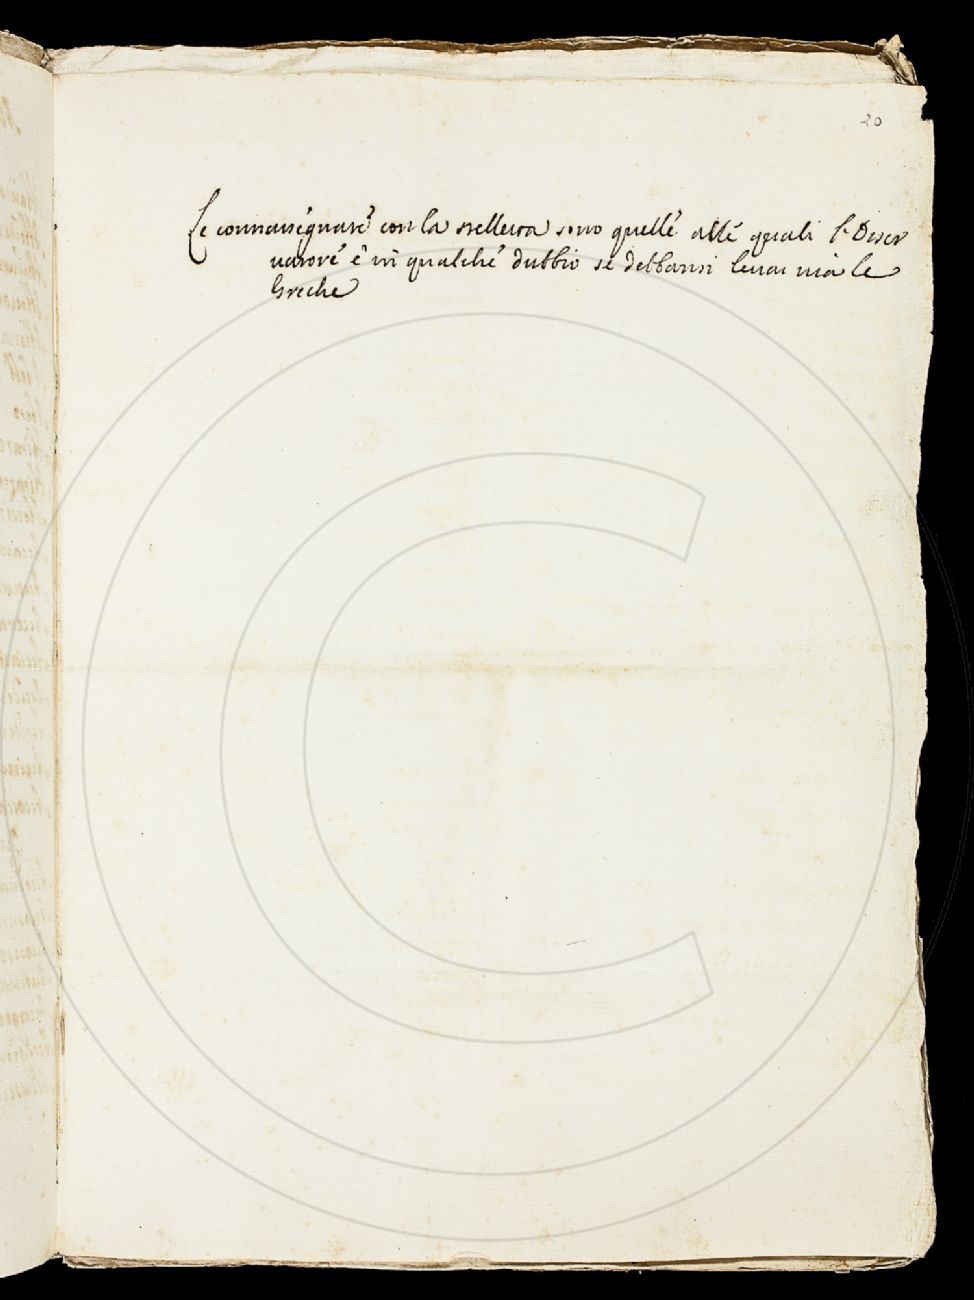 20
Le contrasegnate con la stelletta sono quelle alle quali l'Osser
vatore è in qualche dubbio se debbansi levar via le
Greche